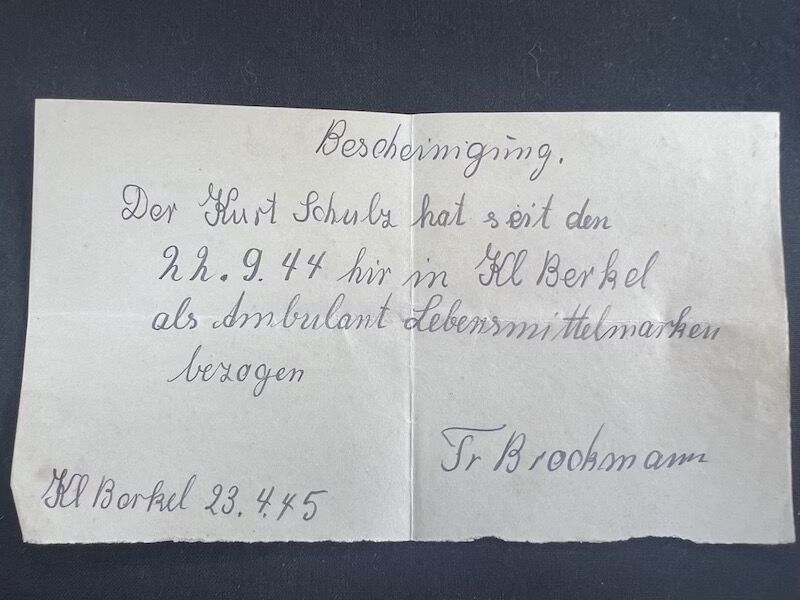 Bescheinigung.
Der Kurt Schulz hat seit den
22.9.44 hir in Kl Berkel
als Ambulant Lebensmittelmarken
bezogen
Fr Brockmann
Kl Berkel 23.4.45